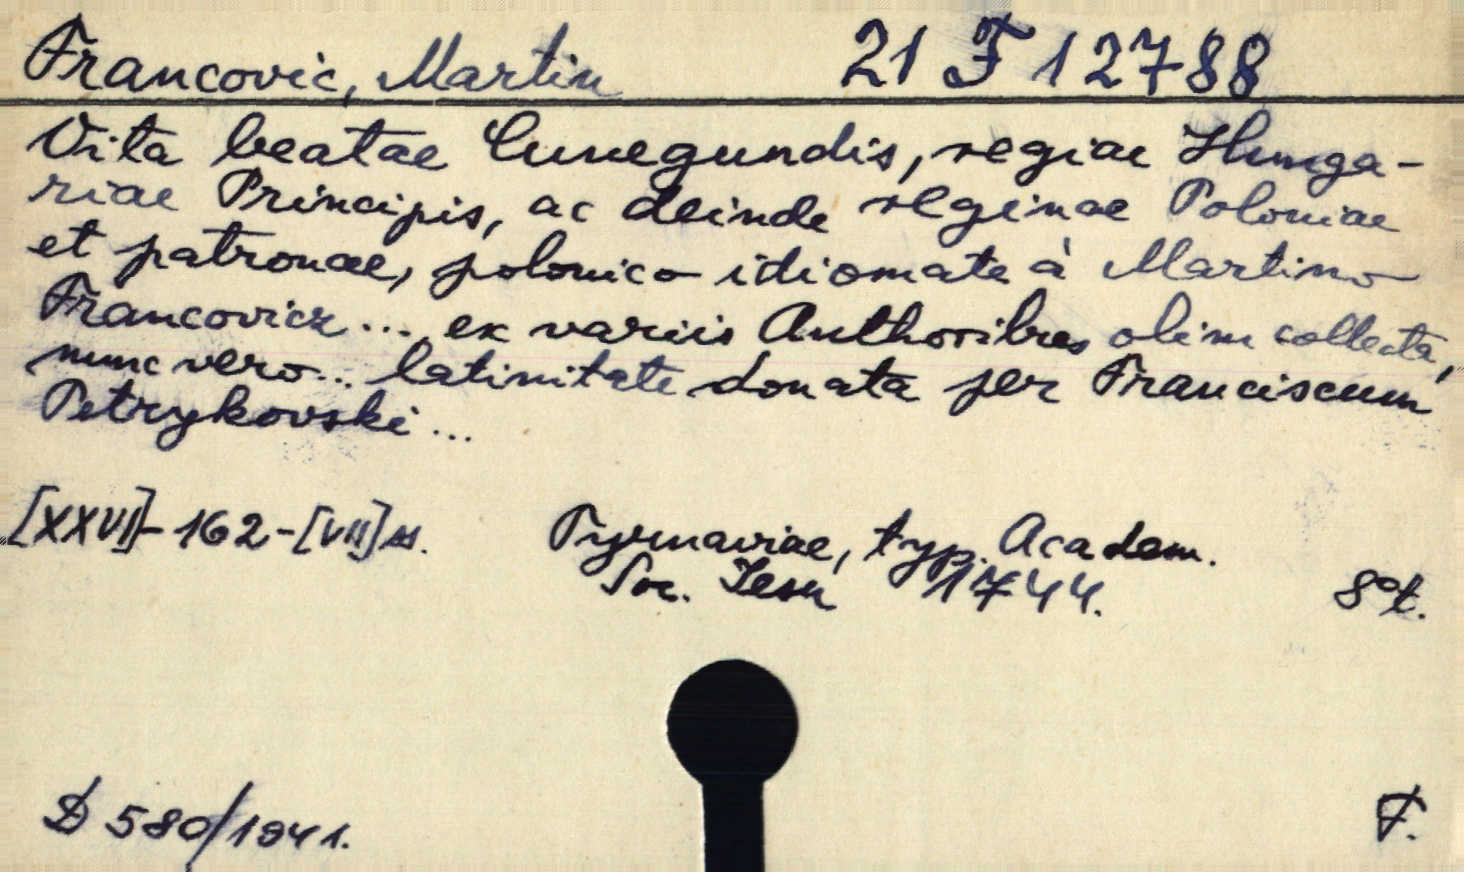 Francovic, Martin 21 F 12788
Vita beatae Cunegundis, regiae Hunga-
riae Principis, ac deinde reginae Poloniae
et patronae, polonico idiomate à Martino
Francovicz ... ex variis Authoribus olim collecta,
nunc vero... latinitate donata per Franciscum
Petrykovski ...
[XXVI]-162-[VII] Tyrnaviae, typ. Academ.
Soc. Iesu 1744. 8°t.
D 580/1941. F.